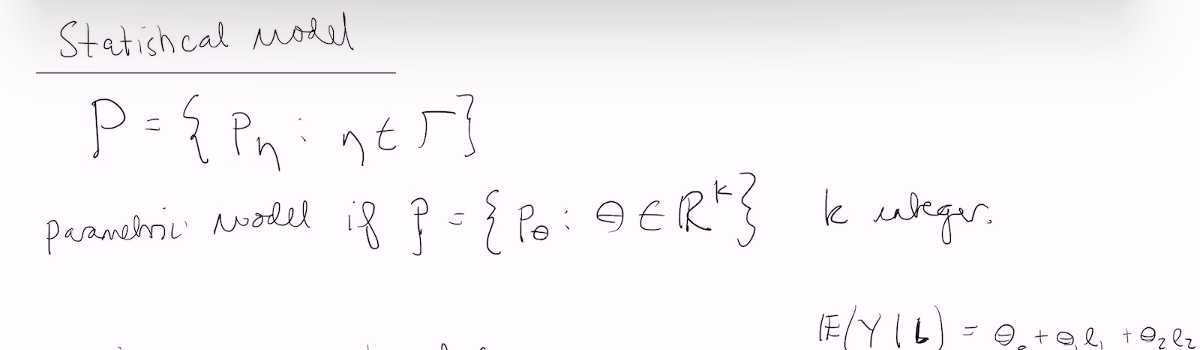 Statistical model
P = { P_η : η ∈ Γ }
parametric model if P = { P_θ : θ ∈ ℝ^k } k integer.
𝔼(Y | L) = θ_0 + θ_1 l_1 + θ_2 l_2